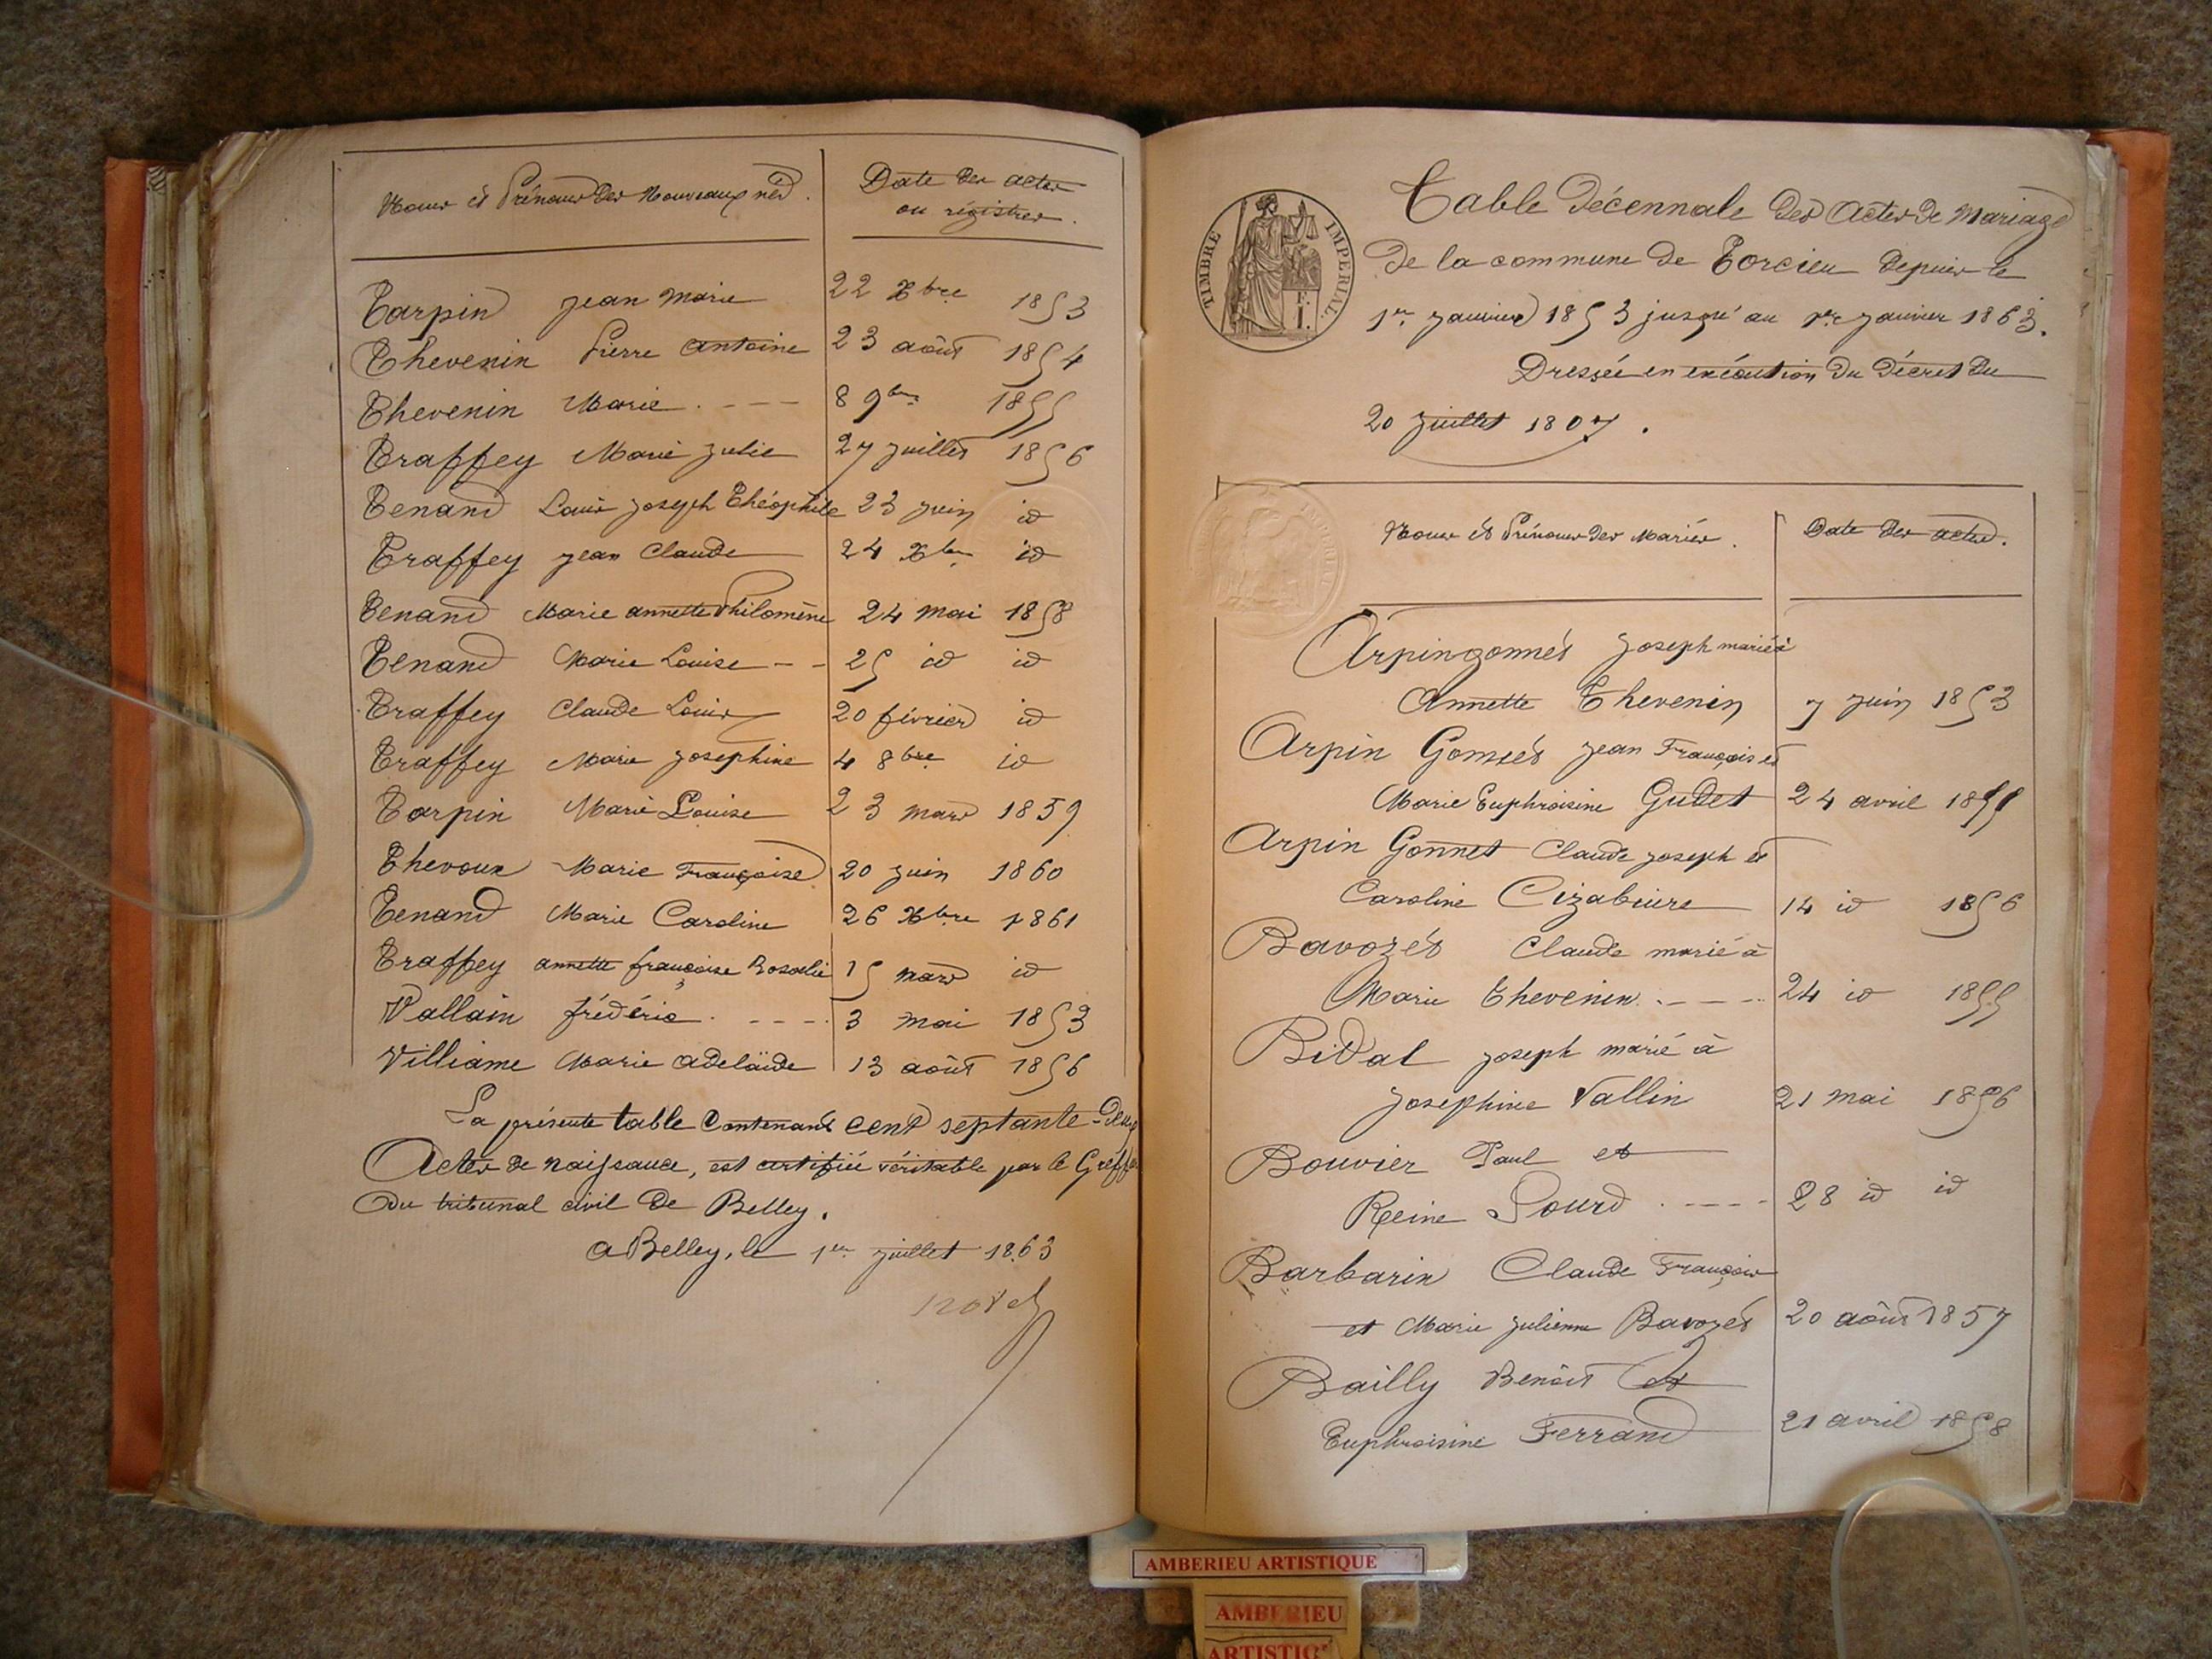 Noms et Prénoms des Nouveaux nés.
Date des actes
ou régistres.
Tarpin Jean Marie 22 Xbre 1853
Thevenin Pierre Antoine 23 août 1854
Thevenin Marie . - - - 8 9bre 1855
Traffey Marie Julie 27 juillet 1856
Tenand Louis Joseph Théophile 23 juin id
Traffey Jean Claude 24 Xbre id
Tenand Marie annette Philomène 24 mai 1858
Tenand Marie Louise - - 25 id id
Traffey Claude Louis 20 février id
Traffey Marie Josephine 4 8bre id
Tarpin Marie Louise 23 mars 1859
Thevoux Marie Françoise 20 juin 1860
Tenand Marie Caroline 26 Xbre 1861
Traffey annette françoise Rosalie 15 mars id
Vallain frédéric . - - - - 3 mai 1853
Villiame Marie adelaïde 13 août 1856
La présente table contenant cent septante-deux
Actes de naissance, est certifiée véritable par le Greffier
du tribunal civil de Belley.
a Belley, le 1er juillet 1863
TIMBRE IMPERIAL
Table décennale des Actes de Mariage
de la commune de Torcieu depuis le
1er Janvier 1853 jusqu'au 1er Janvier 1863.
Dressée en exécution du décret du
20 juillet 1807.
Noms et Prénoms des Mariés.
Date des actes.
Arpingonnet Joseph marié à
Annette Thevenin 7 juin 1853
Arpin Gonnet Jean François et
Marie Euphroisine Gudet 24 avril 1855
Arpin Gonnet Claude Joseph et
Caroline Cizabuire 14 id 1856
Bavozet Claude marié à
Marie Thevenin . - - - 24 id 1855
Bidal Joseph marié à
Josephine Vallin 21 mai 1856
Bouvier Paul et
Reine Sourd . - - - - 28 id id
Barbarin Claude François
et Marie Julienne Bavozet 20 août 1857
Bailly Benoit et
Euphroisine Ferrand 21 avril 1858
AMBERIEU ARTISTIQUE
AMBERIEU
ARTISTIQ